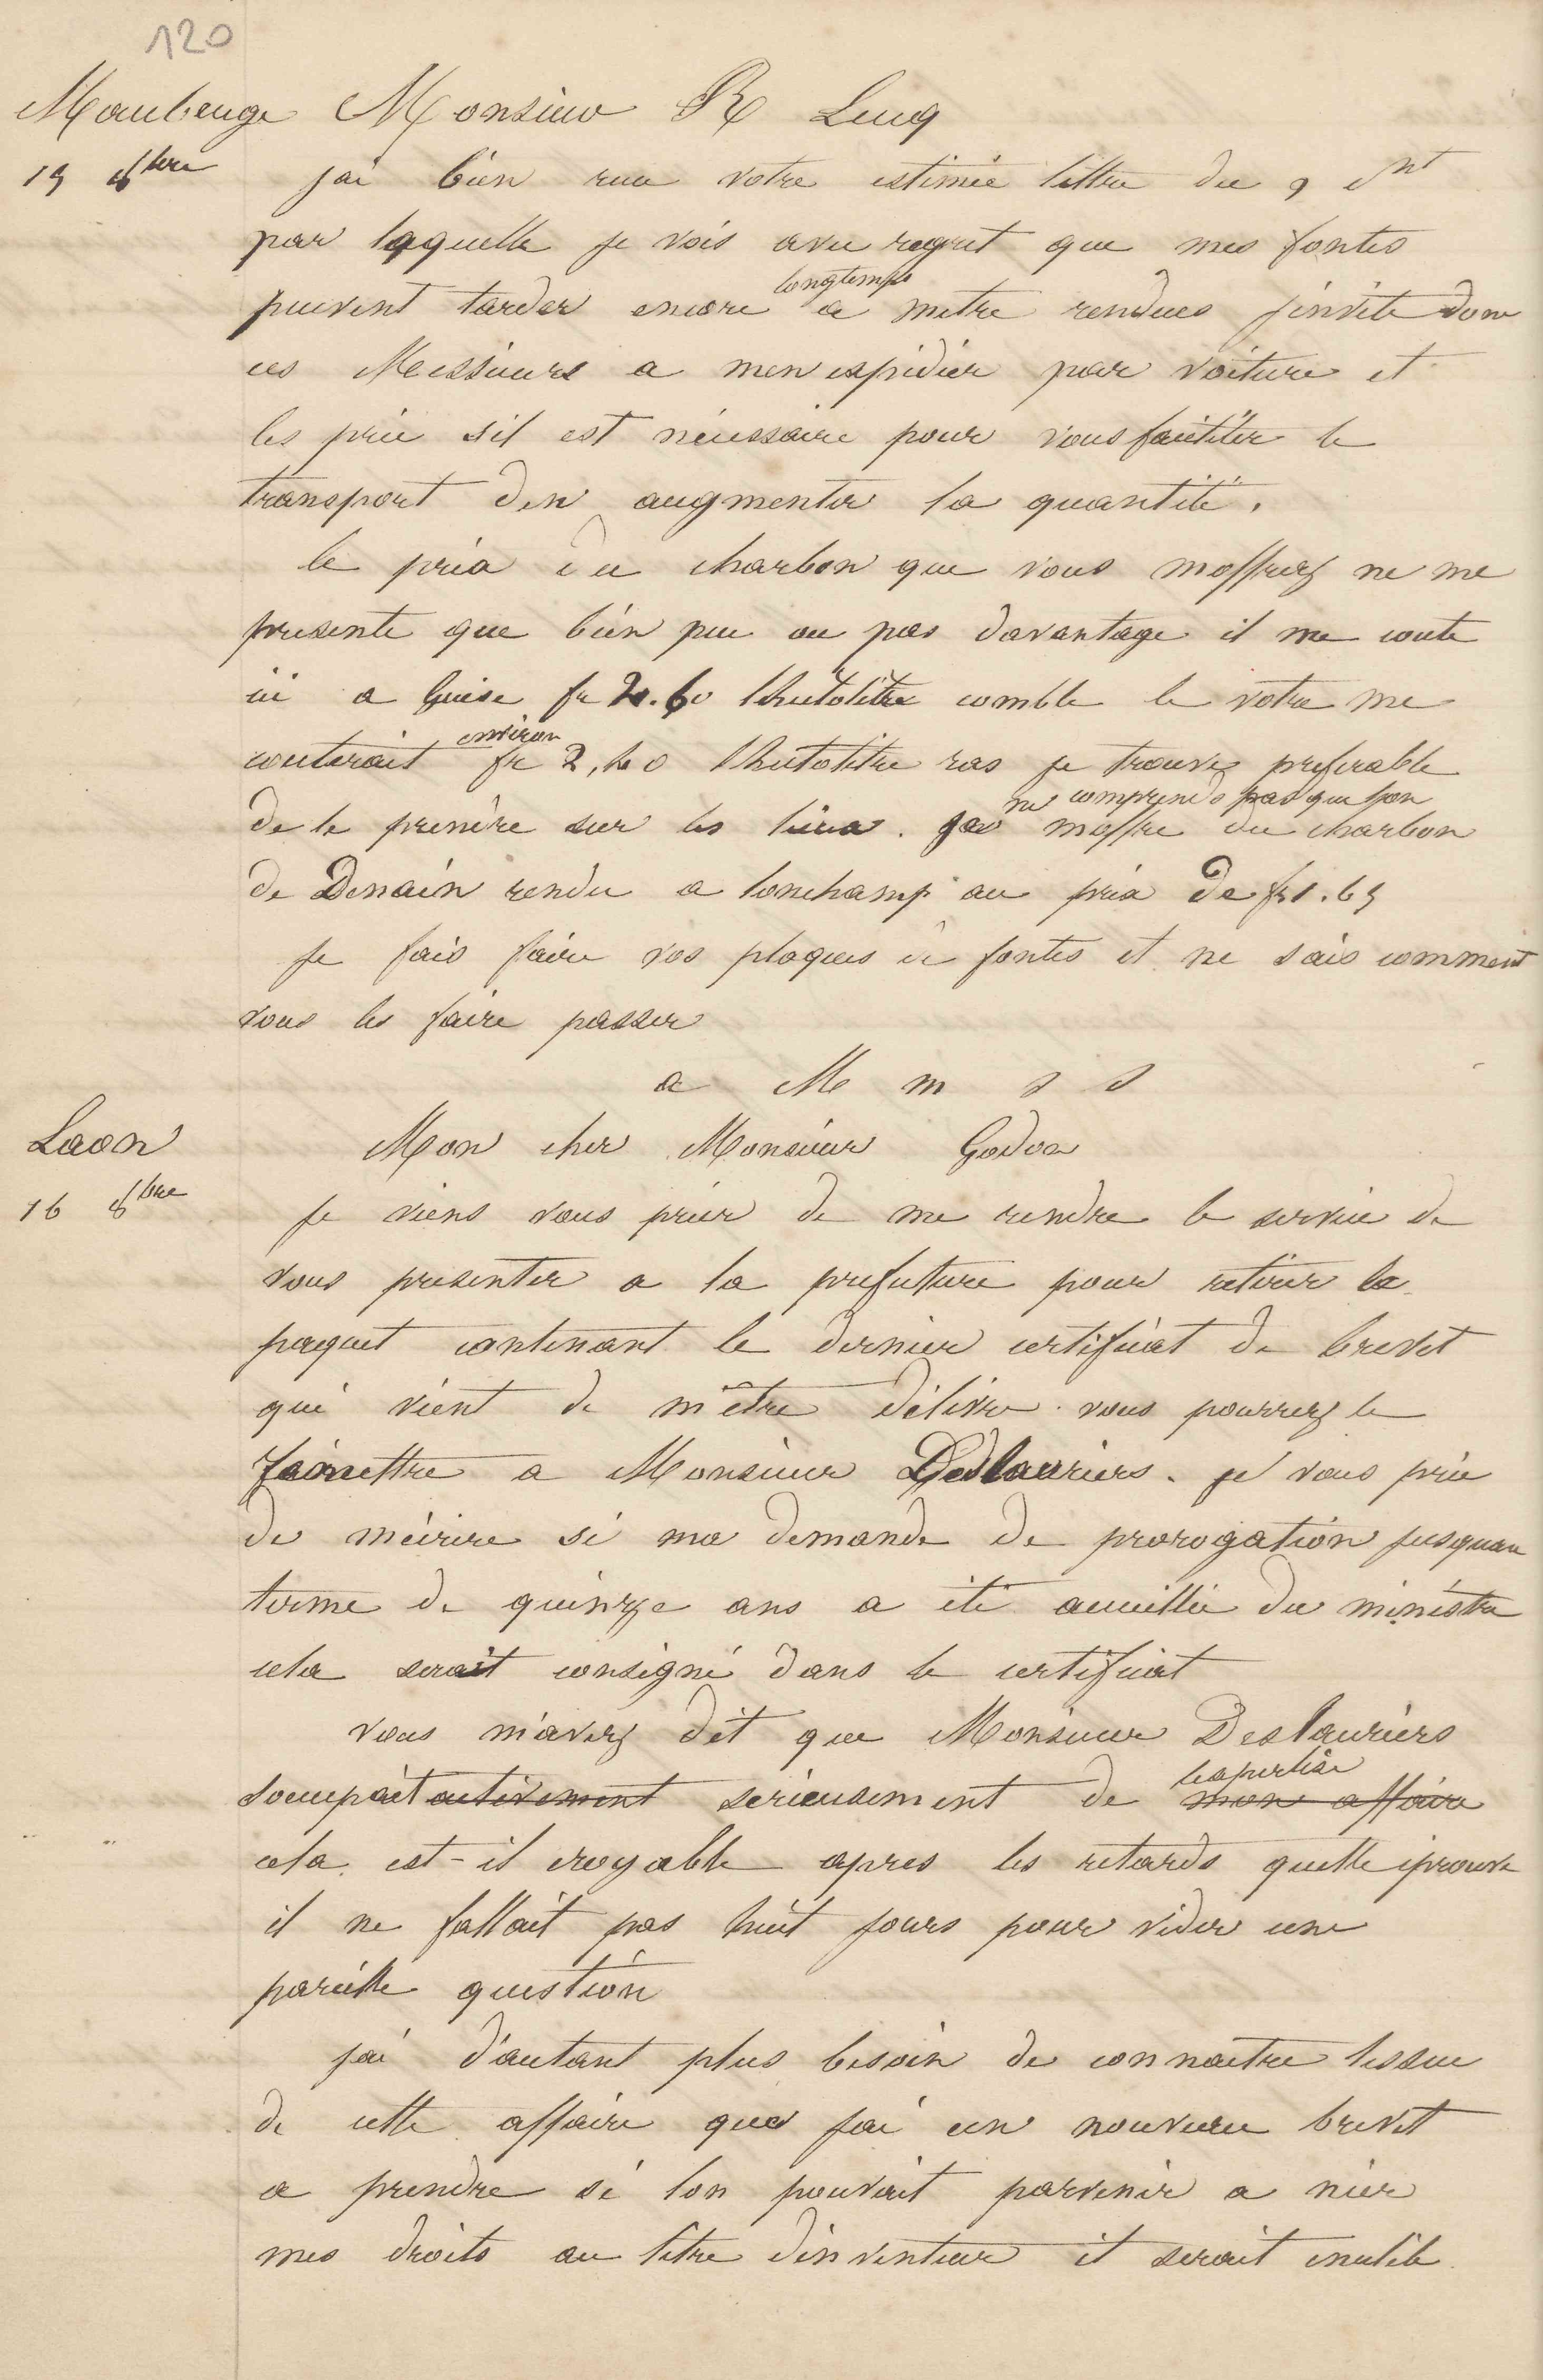 120
Maubeuge Monsieur R Lucq
15 8bre jai bien recu votre estimée lettre du 9 ct
par laquelle je vois avec regret que mes fontes
peuvent tarder encore longtemps a metre rendues jinvite donc
ces Messieurs a men expédier par voiture et
les prie sil est nécessaire pour vous faciliter le
transport den augmenter la quantité.
le prix du charbon que vous moffrez ne me
presente que bien peu ou pas davantage il me coute
ici a Guise fr 2.60 lhectolitre comble le votre me
couterait environ fr 2,40 lhectolitre ras je trouve preferable
de le prendre sur les lieux. je ne comprends pas que lon moffre du charbon
de Denain rendu a lonchamp au prix de fr 1.65
je fais faire vos plaques de fontes et ne sais comment
vous les faire passer
a M m s s
Laon Mon cher Monsieur Godon
16 8bre je viens vous prier de me rendre le service de
vous presenter a la prefecture pour retirer le
paquet contenant le dernier certificat de brevet
qui vient de m'être délivre. vous pourrez le
a Monsieur Deslauriers. je vous prie
de mécrire si ma demande de prorogation jusquau
terme de quinze ans a été accueillie du ministre
cela serait consigné dans le certificat
vous m'avez dit que Monsieur Deslauriers
soccupait activement serieusement de lexpertise mon affaire
cela est-il croyable apres les retards quelle eprouve
il ne fallait pas huit jours pour vider une
pareille question
jai d'autant plus besoin de connaitre lissue
de cette affaire que jai un nouveau brevet
a prendre si lon pouvait parvenir a nier
mes droits au titre dinventeur il serait inutile